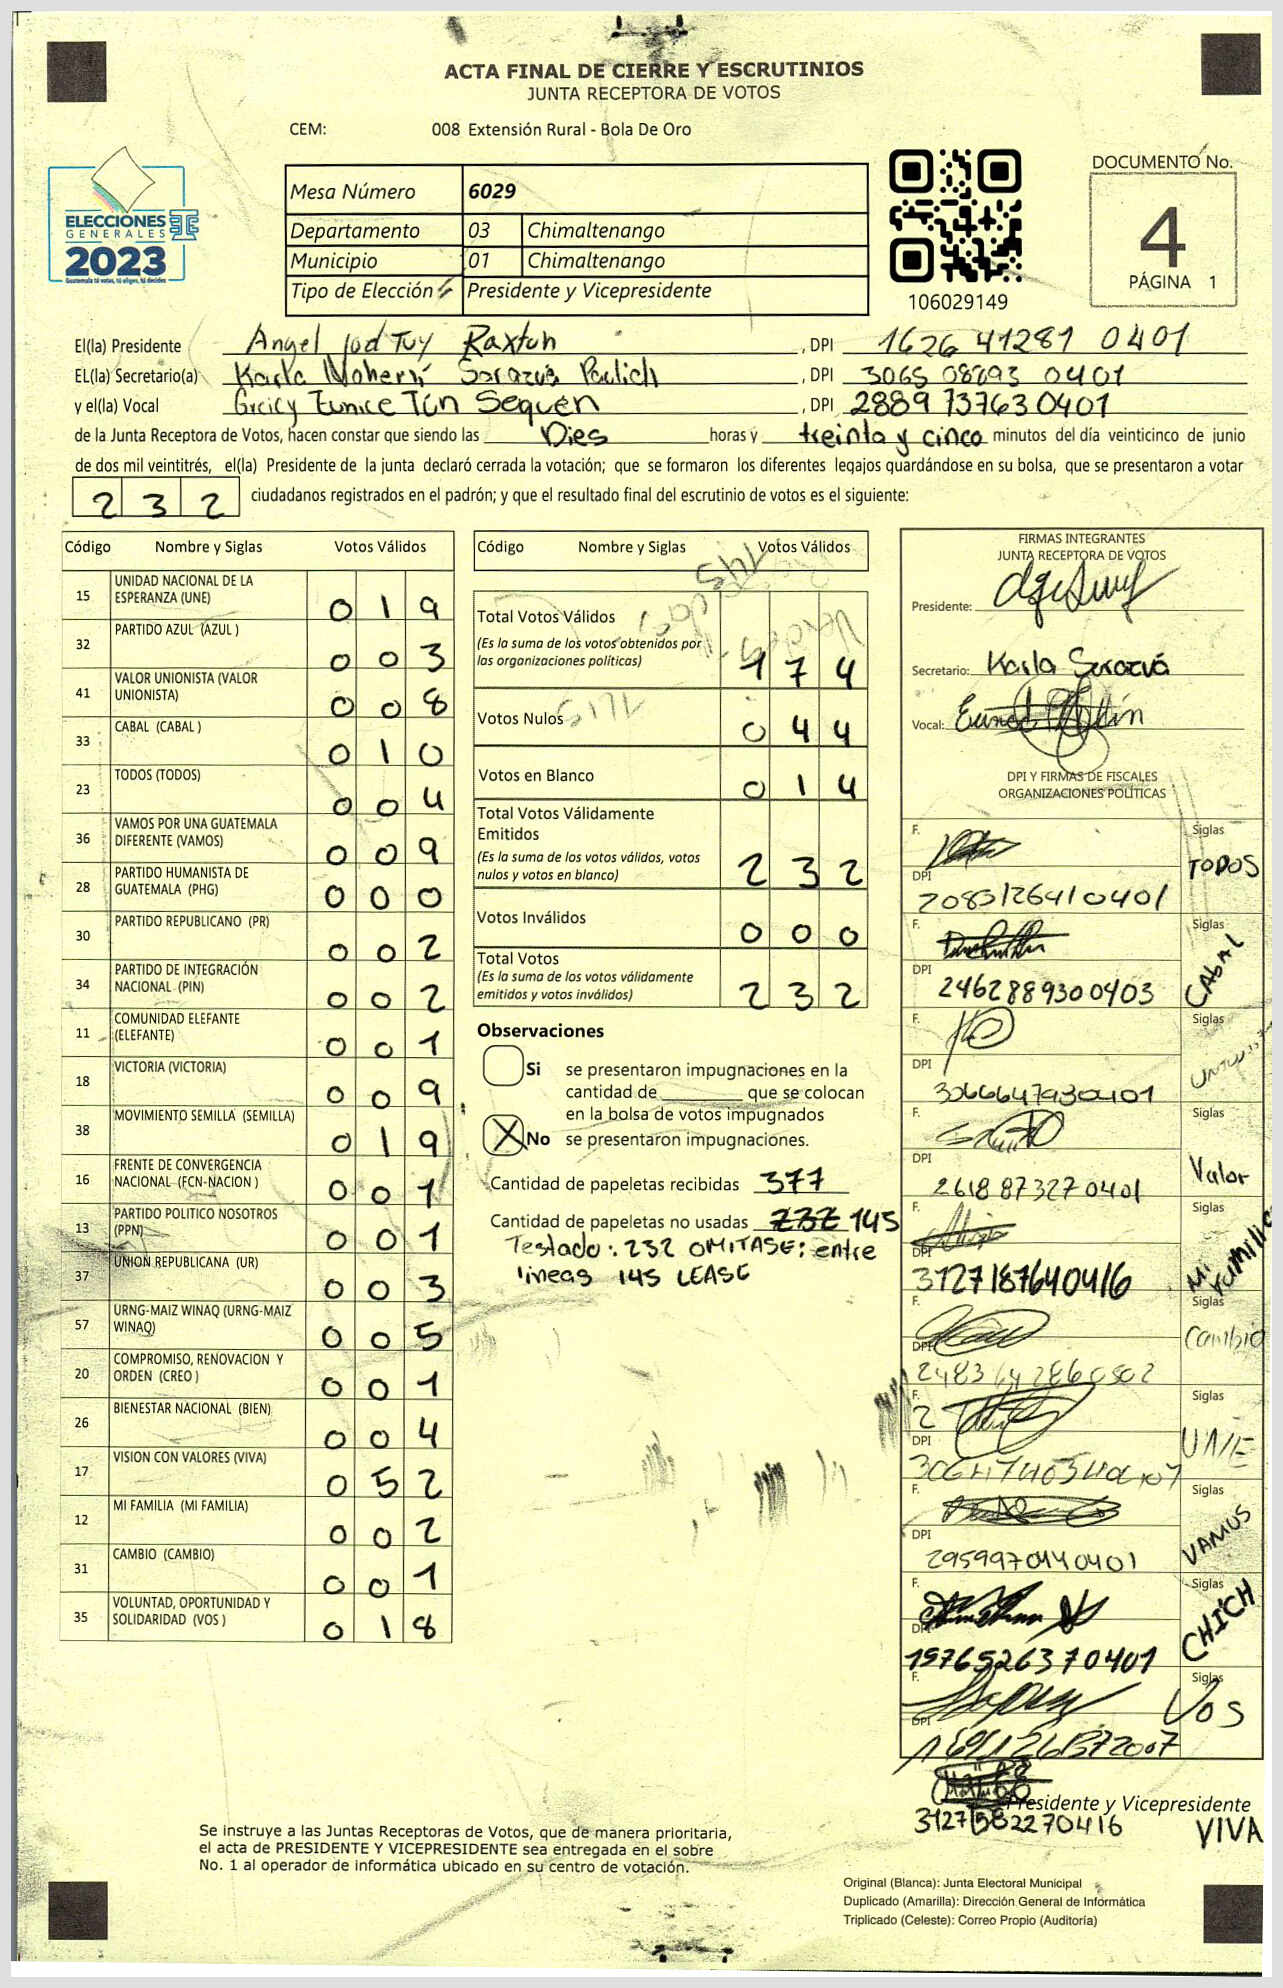 ACTA FINAL DE CIERRE Y ESCRUTINIOS
JUNTA RECEPTORA DE VOTOS
CEM: 008 Extensión Rural - Bola De Oro
ELECCIONES
GENERALES
2023
Guatemala tú votas, tú eliges, tú decides
Mesa Número 6029
Departamento 03 Chimaltenango
Municipio 01 Chimaltenango
Tipo de Elección Presidente y Vicepresidente
106029149
DOCUMENTO No.
4
PÁGINA 1
El(la) Presidente Angel Tuy Raxtun, DPI 1626 41281 0401
EL(la) Secretario(a) Karla Sorazuá, DPI 3065 08293 0401
y el(la) Vocal Greicy Eunice Tún Sequén, DPI 2889 73763 0401
de la Junta Receptora de Votos, hacen constar que siendo las Dies horas y treinta y cinco minutos del día veinticinco de junio
de dos mil veintitrés, el(la) Presidente de la junta declaró cerrada la votación; que se formaron los diferentes legajos guardándose en su bolsa, que se presentaron a votar
232 ciudadanos registrados en el padrón; y que el resultado final del escrutinio de votos es el siguiente:
Código Nombre y Siglas Votos Válidos
15 UNIDAD NACIONAL DE LA ESPERANZA (UNE) 019
32 PARTIDO AZUL (AZUL ) 003
41 VALOR UNIONISTA (VALOR UNIONISTA) 008
33 CABAL (CABAL ) 010
23 TODOS (TODOS) 004
36 VAMOS POR UNA GUATEMALA DIFERENTE (VAMOS) 009
28 PARTIDO HUMANISTA DE GUATEMALA (PHG) 000
30 PARTIDO REPUBLICANO (PR) 002
34 PARTIDO DE INTEGRACIÓN NACIONAL (PIN) 002
11 COMUNIDAD ELEFANTE (ELEFANTE) 001
18 VICTORIA (VICTORIA) 009
38 MOVIMIENTO SEMILLA (SEMILLA) 019
16 FRENTE DE CONVERGENCIA NACIONAL (FCN-NACION ) 001
13 PARTIDO POLITICO NOSOTROS (PPN) 001
37 UNION REPUBLICANA (UR) 003
57 URNG-MAIZ WINAQ (URNG-MAIZ WINAQ) 005
20 COMPROMISO, RENOVACION Y ORDEN (CREO ) 001
26 BIENESTAR NACIONAL (BIEN) 004
17 VISION CON VALORES (VIVA) 052
12 MI FAMILIA (MI FAMILIA) 002
31 CAMBIO (CAMBIO) 001
35 VOLUNTAD, OPORTUNIDAD Y SOLIDARIDAD (VOS ) 018
Código Nombre y Siglas Votos Válidos
Total Votos Válidos
(Es la suma de los votos obtenidos por
las organizaciones políticas) 174
Votos Nulos 044
Votos en Blanco 014
Total Votos Válidamente
Emitidos
(Es la suma de los votos válidos, votos
nulos y votos en blanco) 232
Votos Inválidos 000
Total Votos
(Es la suma de los votos válidamente
emitidos y votos inválidos) 232
Observaciones
Si se presentaron impugnaciones en la
cantidad de ________ que se colocan
en la bolsa de votos impugnados
X No se presentaron impugnaciones.
Cantidad de papeletas recibidas 377
Cantidad de papeletas no usadas 232 145
Testado: 232 OMITASE: entre
lineas 145 LEASE
FIRMAS INTEGRANTES
JUNTA RECEPTORA DE VOTOS
Presidente:
Secretario: Karla Sorazuá
Vocal:
DPI Y FIRMAS DE FISCALES
ORGANIZACIONES POLÍTICAS
F. Siglas
TODOS
DPI
2083126410401
F. Siglas
CABAL
DPI
2462889300403
F. Siglas
DPI
3066647930401
F. Siglas
Valor
DPI
2618873270401
MI FAMILIA
DPI
3127187640416
F. Siglas
Cambio
DPI
F. Siglas
UNE
DPI
F. Siglas
VAMOS
DPI
2959970440401
F. Siglas
CHICH
DPI
1976526370401
F. Siglas
VOS
DPI
Presidente y Vicepresidente
3127582270416
VIVA
Se instruye a las Juntas Receptoras de Votos, que de manera prioritaria,
el acta de PRESIDENTE Y VICEPRESIDENTE sea entregada en el sobre
No. 1 al operador de informática ubicado en su centro de votación.
Original (Blanca): Junta Electoral Municipal
Duplicado (Amarilla): Dirección General de Informática
Triplicado (Celeste): Correo Propio (Auditoría)